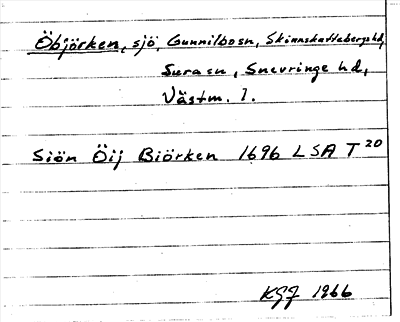 Öbjörken, sjö, Gunnilbosn, Skinnskattebergs hd,
Surasn, Snevringe hd,
Västm. l.
Siön Öij Biörken 1696 LSA T 20
KGJ 1966